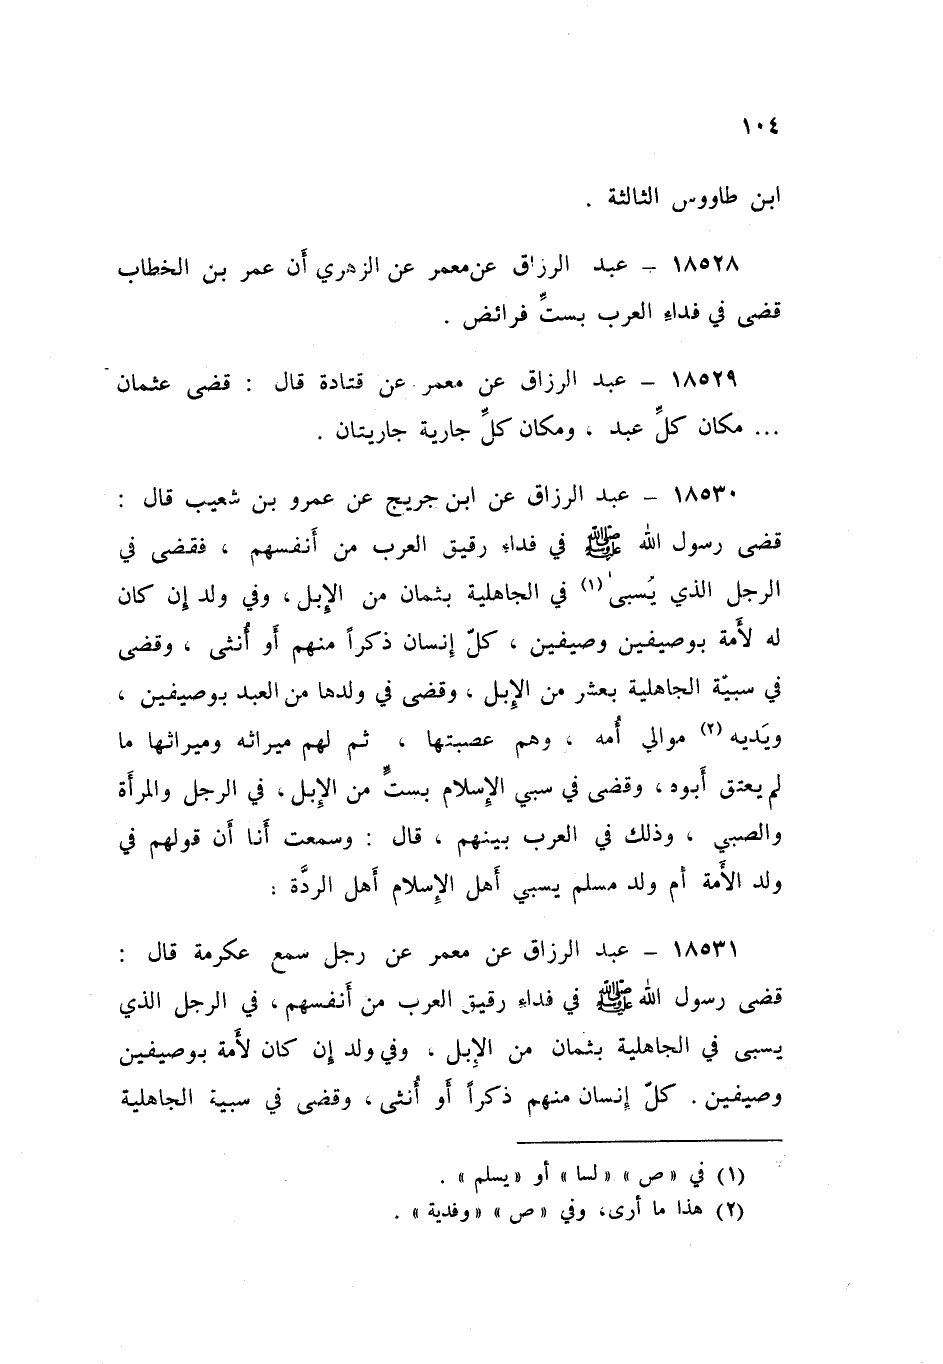 ١٠٤
ابن طاووس الثالثة .
١٨٥٢٨ – عبد الرزاق عن معمر عن الزهري أن عمر بن الخطاب
قضى في فداءِ العرب بستٍّ فرائض .
١٨٥٢٩ – عبد الرزاق عن معمر عن قتادة قال : قضى عثمان
... مكان كلِّ عبد ، ومكان كلِّ جارية جاريتان .
١٨٥٣٠ – عبد الرزاق عن ابن جريج عن عمرو بن شعيب قال :
قضى رسول الله ﷺ في فداءِ رقيق العرب من أَنفسهم ، فقضى في
الرجل الذي يُسبى (١) في الجاهلية بثمان من الإِبل ، وفي ولد إن كان
له لأَمة بوصيفين وصيفين ، كلّ إنسان ذكراً منهم أَو أُنثى ، وقضى
في سبيّة الجاهلية بعشر من الإِبل ، وقضى في ولدها من العبد بوصيفين ،
ويَديه (٢) موالي أُمه ، وهم عصبتها ، ثم لهم ميراثه وميراثها ما
لم يعتق أَبوه ، وقضى في سبي الإِسلام بستٍّ من الإِبل ، في الرجل والمرأَة
والصبي ، وذلك في العرب بينهم ، قال : وسمعت أَنا أَن قولهم في
ولد الأَمة أم ولد مسلم يسبي أَهل الإِسلام أَهل الردَّة :
١٨٥٣١ – عبد الرزاق عن معمر عن رجل سمع عكرمة قال :
قضى رسول الله ﷺ في فداءِ رقيق العرب من أَنفسهم ، في الرجل الذي
يسبى في الجاهلية بثمان من الإِبل ، وفي ولد إن كان لأَمة بوصيفين
وصيفين . كلّ إنسان منهم ذكراً أَو أُنثى ، وقضى في سبية الجاهلية
(١) في «ص» «لسا» أو «يسلم» .
(٢) هذا ما أرى، وفي «ص» «وفدية» .